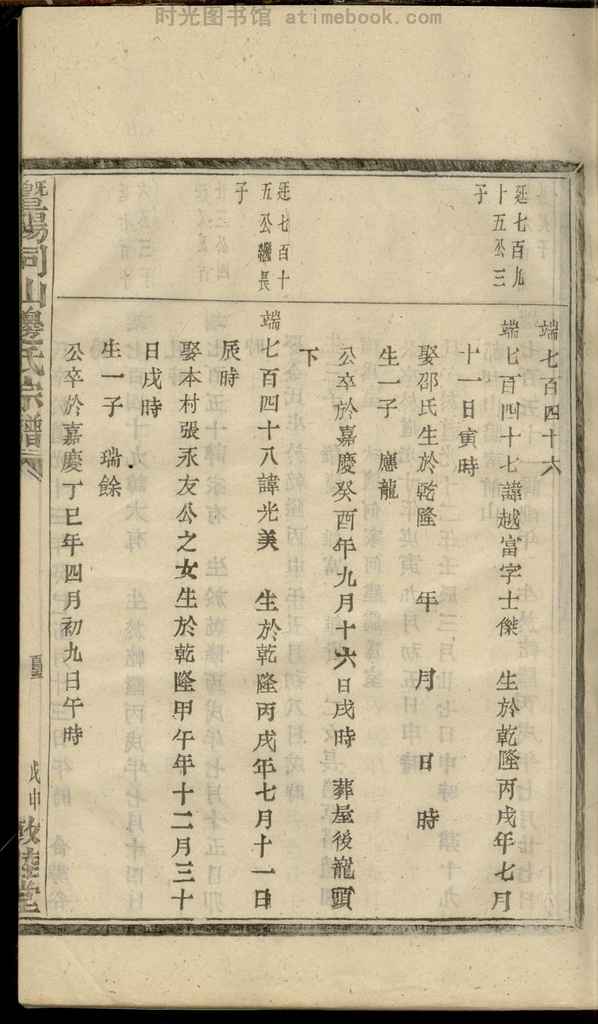 时光图书馆 atimebook.com
端七百四十六
廷七百九
十五公三
子
端七百四十七諱越富字士傑 生於乾隆丙戌年七月
十一日寅時
娶邵氏生於乾隆 年 月 日 時
生一子 應龍
公卒於嘉慶癸酉年九月十六日戌時 葬屋後龍頭
下
廷七百十
五公繼長
子
端七百四十八諱光美 生於乾隆丙戌年七月十一日
辰時
娶本村張永友公之女生於乾隆甲午年十二月三十
日戌時
生一子 瑞餘
公卒於嘉慶丁巳年四月初九日午時
暨陽同山邊氏宗譜
戊申
敦睦堂